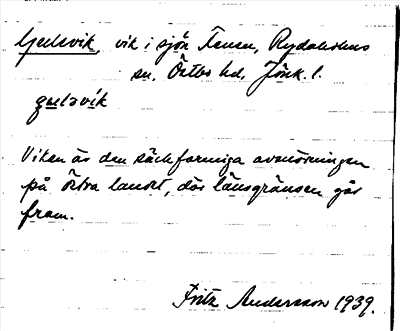 Gulsvik, vik i sjön Fenen, Rydaholms
sn, Östbo hd, Jönk. l.
Viken är den säckformiga avsnörningen
på östra landet, där länsgränsen går
fram.
Fritz Andersson 1939.